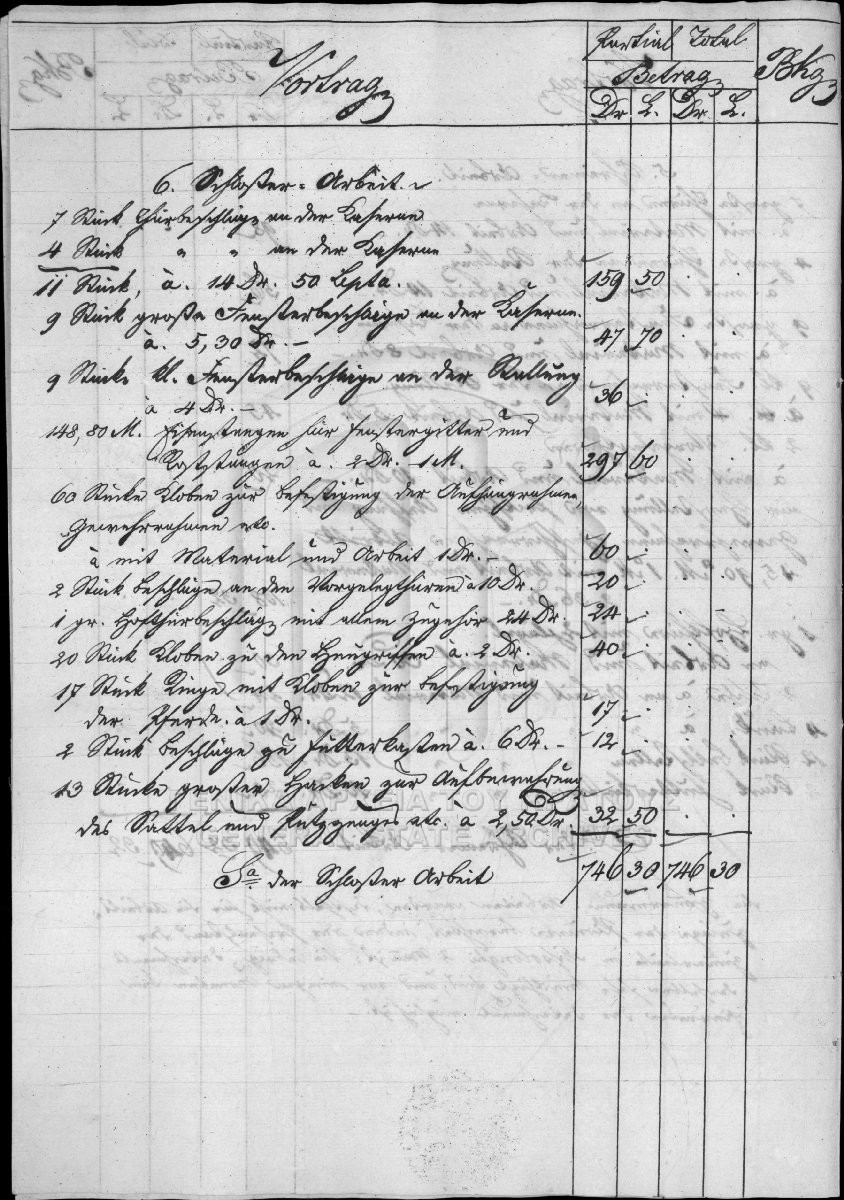 Vortrag
Partial Total
Betrag
Bkg
Dr. L. Dr. L.
6. Schloßer-Arbeit.
7 Stück Thürbeschläge an der Kaserne
4 Stück " " an der Kaserne
11 Stück, à. 14 Dr. 50 Lepta. 159 50
9 Stück große Fensterbeschläge an der Kaserne.
à. 5,30 Dr. – 47 70
9 Stücke kl. Fensterbeschläge an der Stallung
à 4 Dr. – 36 –
148,80 M. Eisenstangen für Fenstergitter und
Roststangen à. 2 Dr. – 1 M. 297 60
60 Stücke Kloben zur Befestigung der Aufhängrahmen,
Gewehrrahmen etc.
à mit Material und Arbeit 1 Dr. – 60 –
2 Stück Beschläge an den Vorgelegthüren à 10 Dr. 20 –
1 gr. Hofthürbeschläg mit allem Zugehör 24 Dr. 24 –
20 Stück Kloben zu den à. 2 Dr. 40 –
17 Stück Ringe mit Kloben zur Befestigung
der Pferde. à 1 Dr. 17 –
2 Stück Beschläge zu Futterkasten à. 6 Dr. – 12 –
13 Stücke großer Hacken zur Aufbewahrung
des Sattel und Putzzeuges etc. à 2,50 Dr 32 50
Sa. der Schloßer Arbeit 746 30 746 30